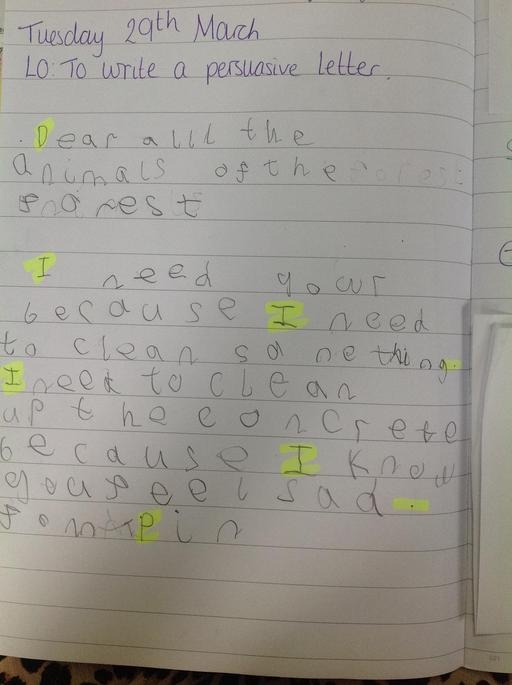 Tuesday 29th March
LO: To write a persuasive letter.
Dear alll the
animals of the forest
I need your
because I need
to clean some thing.
I need to clean
up the concrete
because I know
you feel sad.